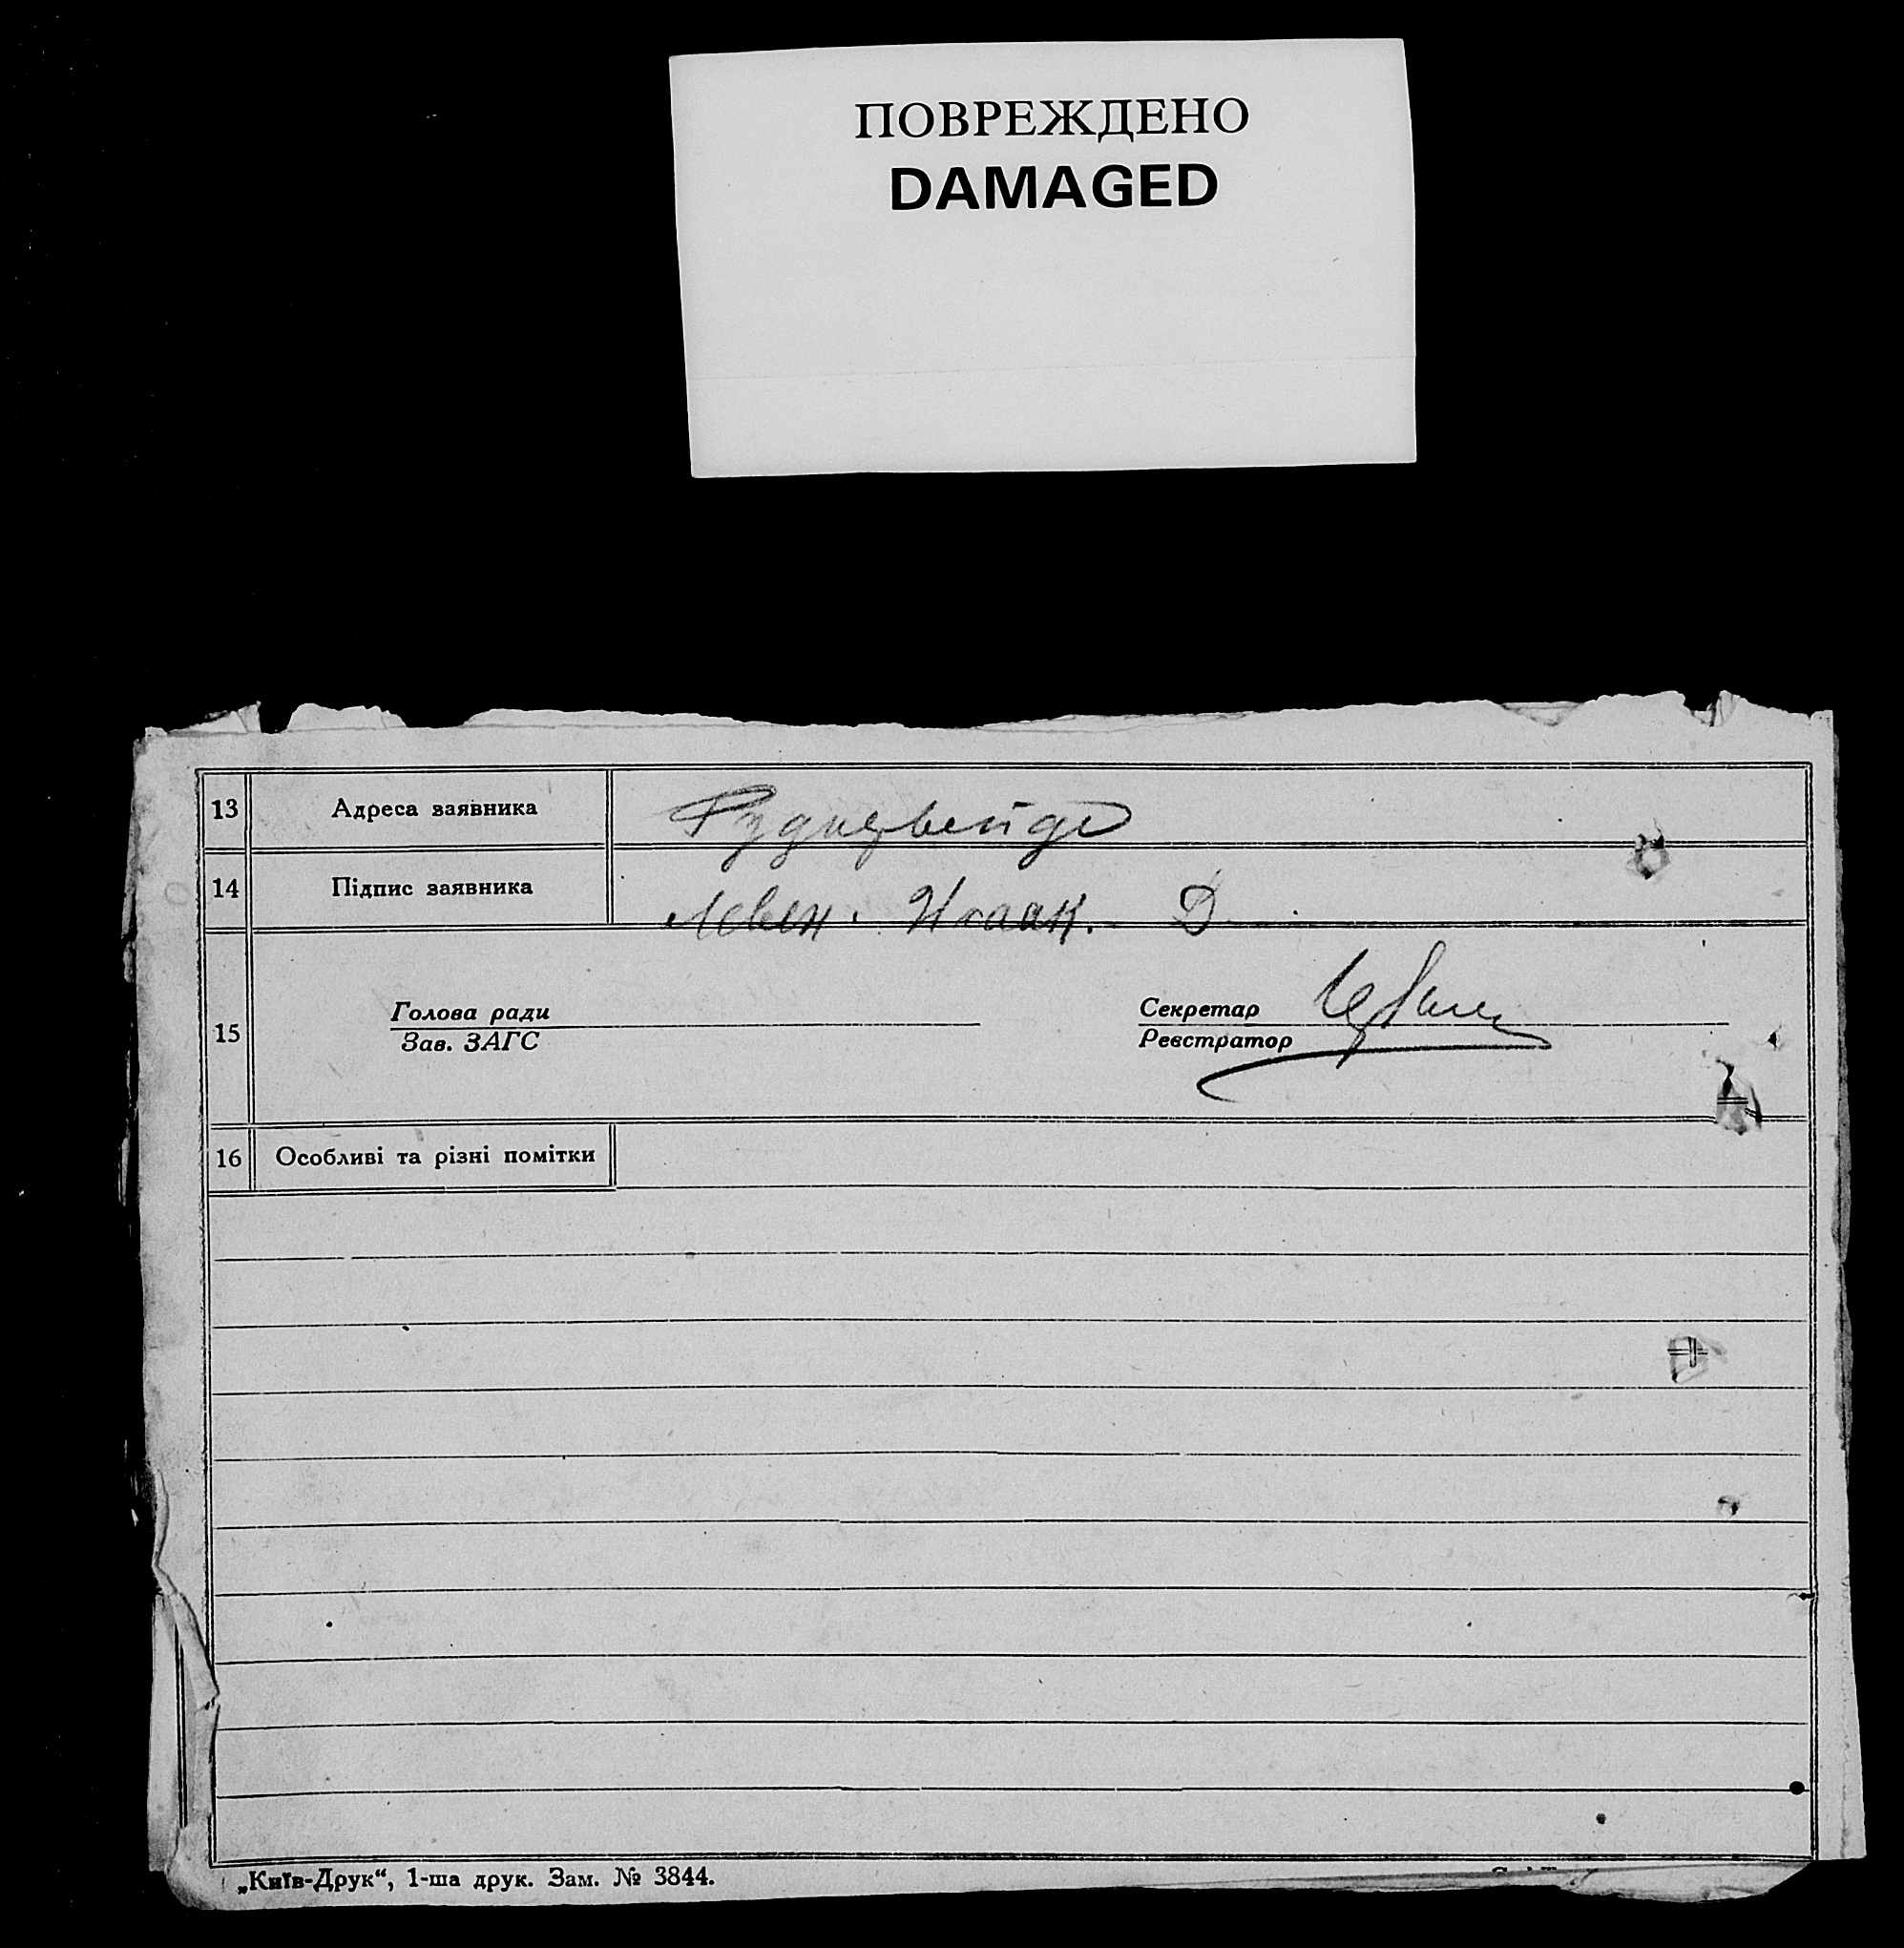 ПОВРЕЖДЕНО
DAMAGED
13 Адреса заявника
14 Підпис заявника Левен. Исаак. Д
15
Голова ради
Зав. ЗАГС
Секретар
Реєстратор
16 Особливі та різні помітки
„Київ-Друк“, 1-ша друк. Зам. № 3844.